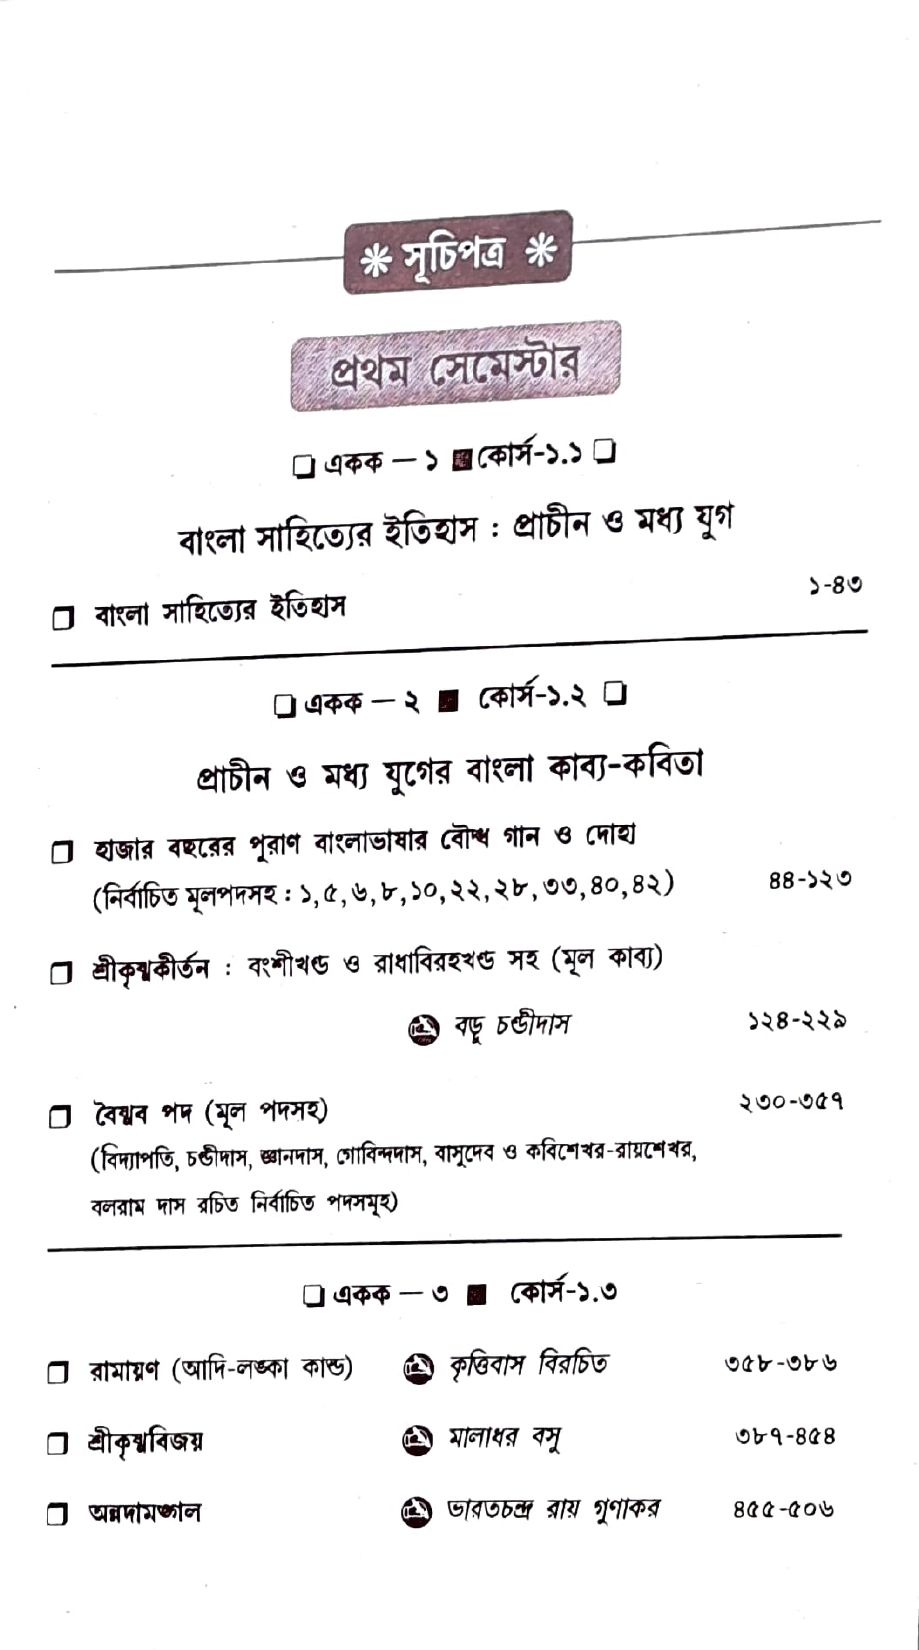 * সূচিপত্র *
প্রথম সেমেস্টার
একক — ১ ■ কোর্স-১.১
বাংলা সাহিত্যের ইতিহাস : প্রাচীন ও মধ্য যুগ
বাংলা সাহিত্যের ইতিহাস ১-৪৩
একক — ২ ■ কোর্স-১.২
প্রাচীন ও মধ্য যুগের বাংলা কাব্য-কবিতা
হাজার বছরের পুরাণ বাংলাভাষার বৌদ্ধ গান ও দোহা
(নির্বাচিত মূলপদসহ : ১, ৫, ৬, ৮, ১০, ২২, ২৮, ৩৩, ৪০, ৪২) ৪৪-১২৩
শ্রীকৃষ্ণকীর্তন : বংশীখণ্ড ও রাধাবিরহখণ্ড সহ (মূল কাব্য)
বড়ু চণ্ডীদাস ১২৪-২২৯
বৈষ্ণব পদ (মূল পদসহ) ২৩০-৩৫৭
(বিদ্যাপতি, চণ্ডীদাস, জ্ঞানদাস, গোবিন্দদাস, বাসুদেব ও কবিশেখর-রায়শেখর,
বলরাম দাস রচিত নির্বাচিত পদসমূহ)
একক — ৩ ■ কোর্স-১.৩
রামায়ণ (আদি-লঙ্কা কান্ড) কৃত্তিবাস বিরচিত ৩৫৮-৩৮৬
শ্রীকৃষ্ণবিজয় মালাধর বসু ৩৮৭-৪৫৪
অন্নদামঙ্গল ভারতচন্দ্র রায় গুণাকর ৪৫৫-৫০৬